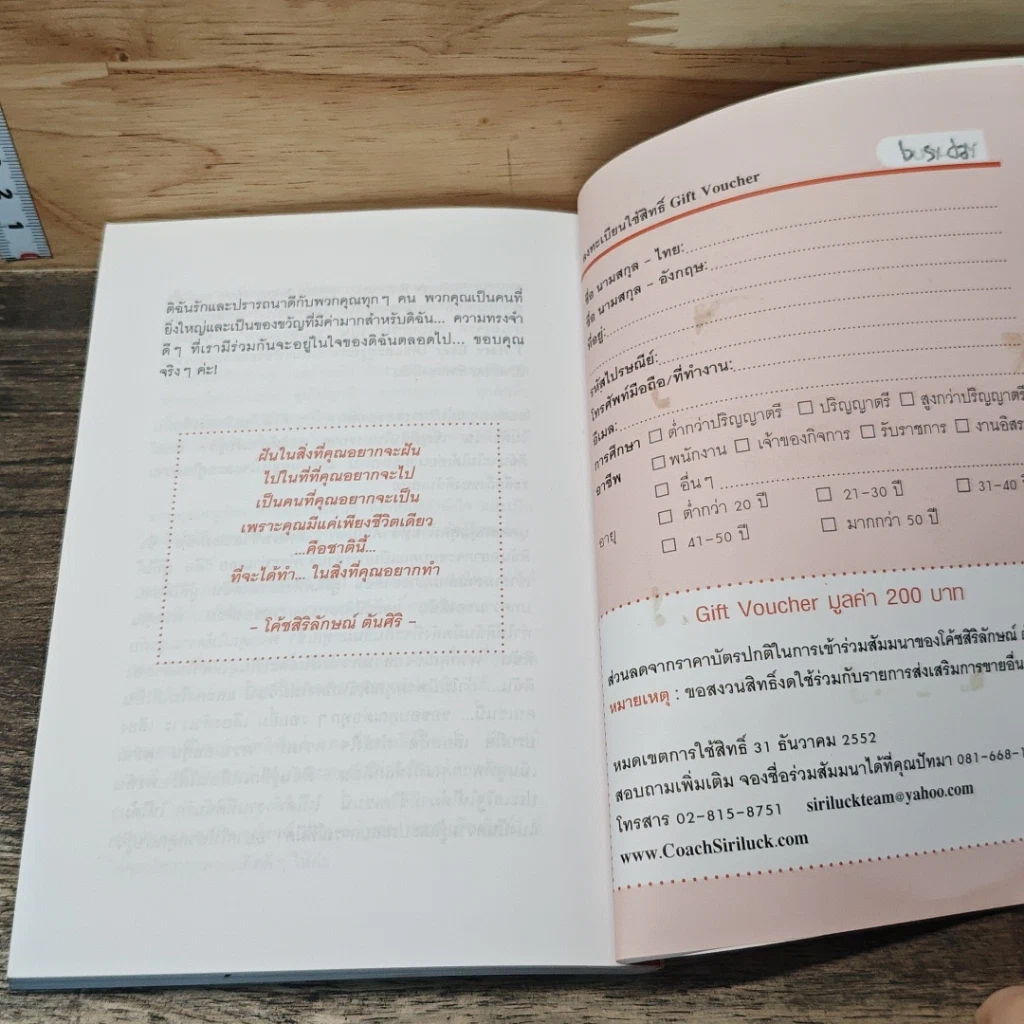 ดิฉันรักและปรารถนาดีกับพวกคุณทุกๆ คน พวกคุณเป็นคนที่
ยิ่งใหญ่และเป็นของขวัญที่มีค่ามากสำหรับดิฉัน... ความทรงจำ
ดีๆ ที่เรามีร่วมกันจะอยู่ในใจของดิฉันตลอดไป... ขอบคุณ
จริงๆ ค่ะ!
ฝันในสิ่งที่คุณอยากจะฝัน
ไปในที่ที่คุณอยากจะไป
เป็นคนที่คุณอยากจะเป็น
เพราะคุณมีแค่เพียงชีวิตเดียว
...คือชาตินี้...
ที่จะได้ทำ... ในสิ่งที่คุณอยากทำ
– โค้ชสิริลักษณ์ ตันศิริ –
busy.day
ลงทะเบียนใช้สิทธิ์ Gift Voucher
ชื่อ นามสกุล – ไทย:
ชื่อ นามสกุล – อังกฤษ:
ที่อยู่:
รหัสไปรษณีย์:
โทรศัพท์มือถือ/ที่ทำงาน:
อีเมล:
การศึกษา □ ต่ำกว่าปริญญาตรี □ ปริญญาตรี □ สูงกว่าปริญญาตรี
อาชีพ □ พนักงาน □ เจ้าของกิจการ □ รับราชการ □ งานอิสร
□ อื่นๆ
อายุ □ ต่ำกว่า 20 ปี □ 21-30 ปี □ 31-40
□ 41-50 ปี □ มากกว่า 50 ปี
Gift Voucher มูลค่า 200 บาท
ส่วนลดจากราคาบัตรปกติในการเข้าร่วมสัมมนาของโค้ชสิริลักษณ์
หมายเหตุ : ขอสงวนสิทธิ์งดใช้ร่วมกับรายการส่งเสริมการขายอื่น
หมดเขตการใช้สิทธิ์ 31 ธันวาคม 2552
สอบถามเพิ่มเติม จองชื่อร่วมสัมมนาได้ที่คุณปัทมา 081-668-1
โทรสาร 02-815-8751 siriluckteam@yahoo.com
www.CoachSiriluck.com